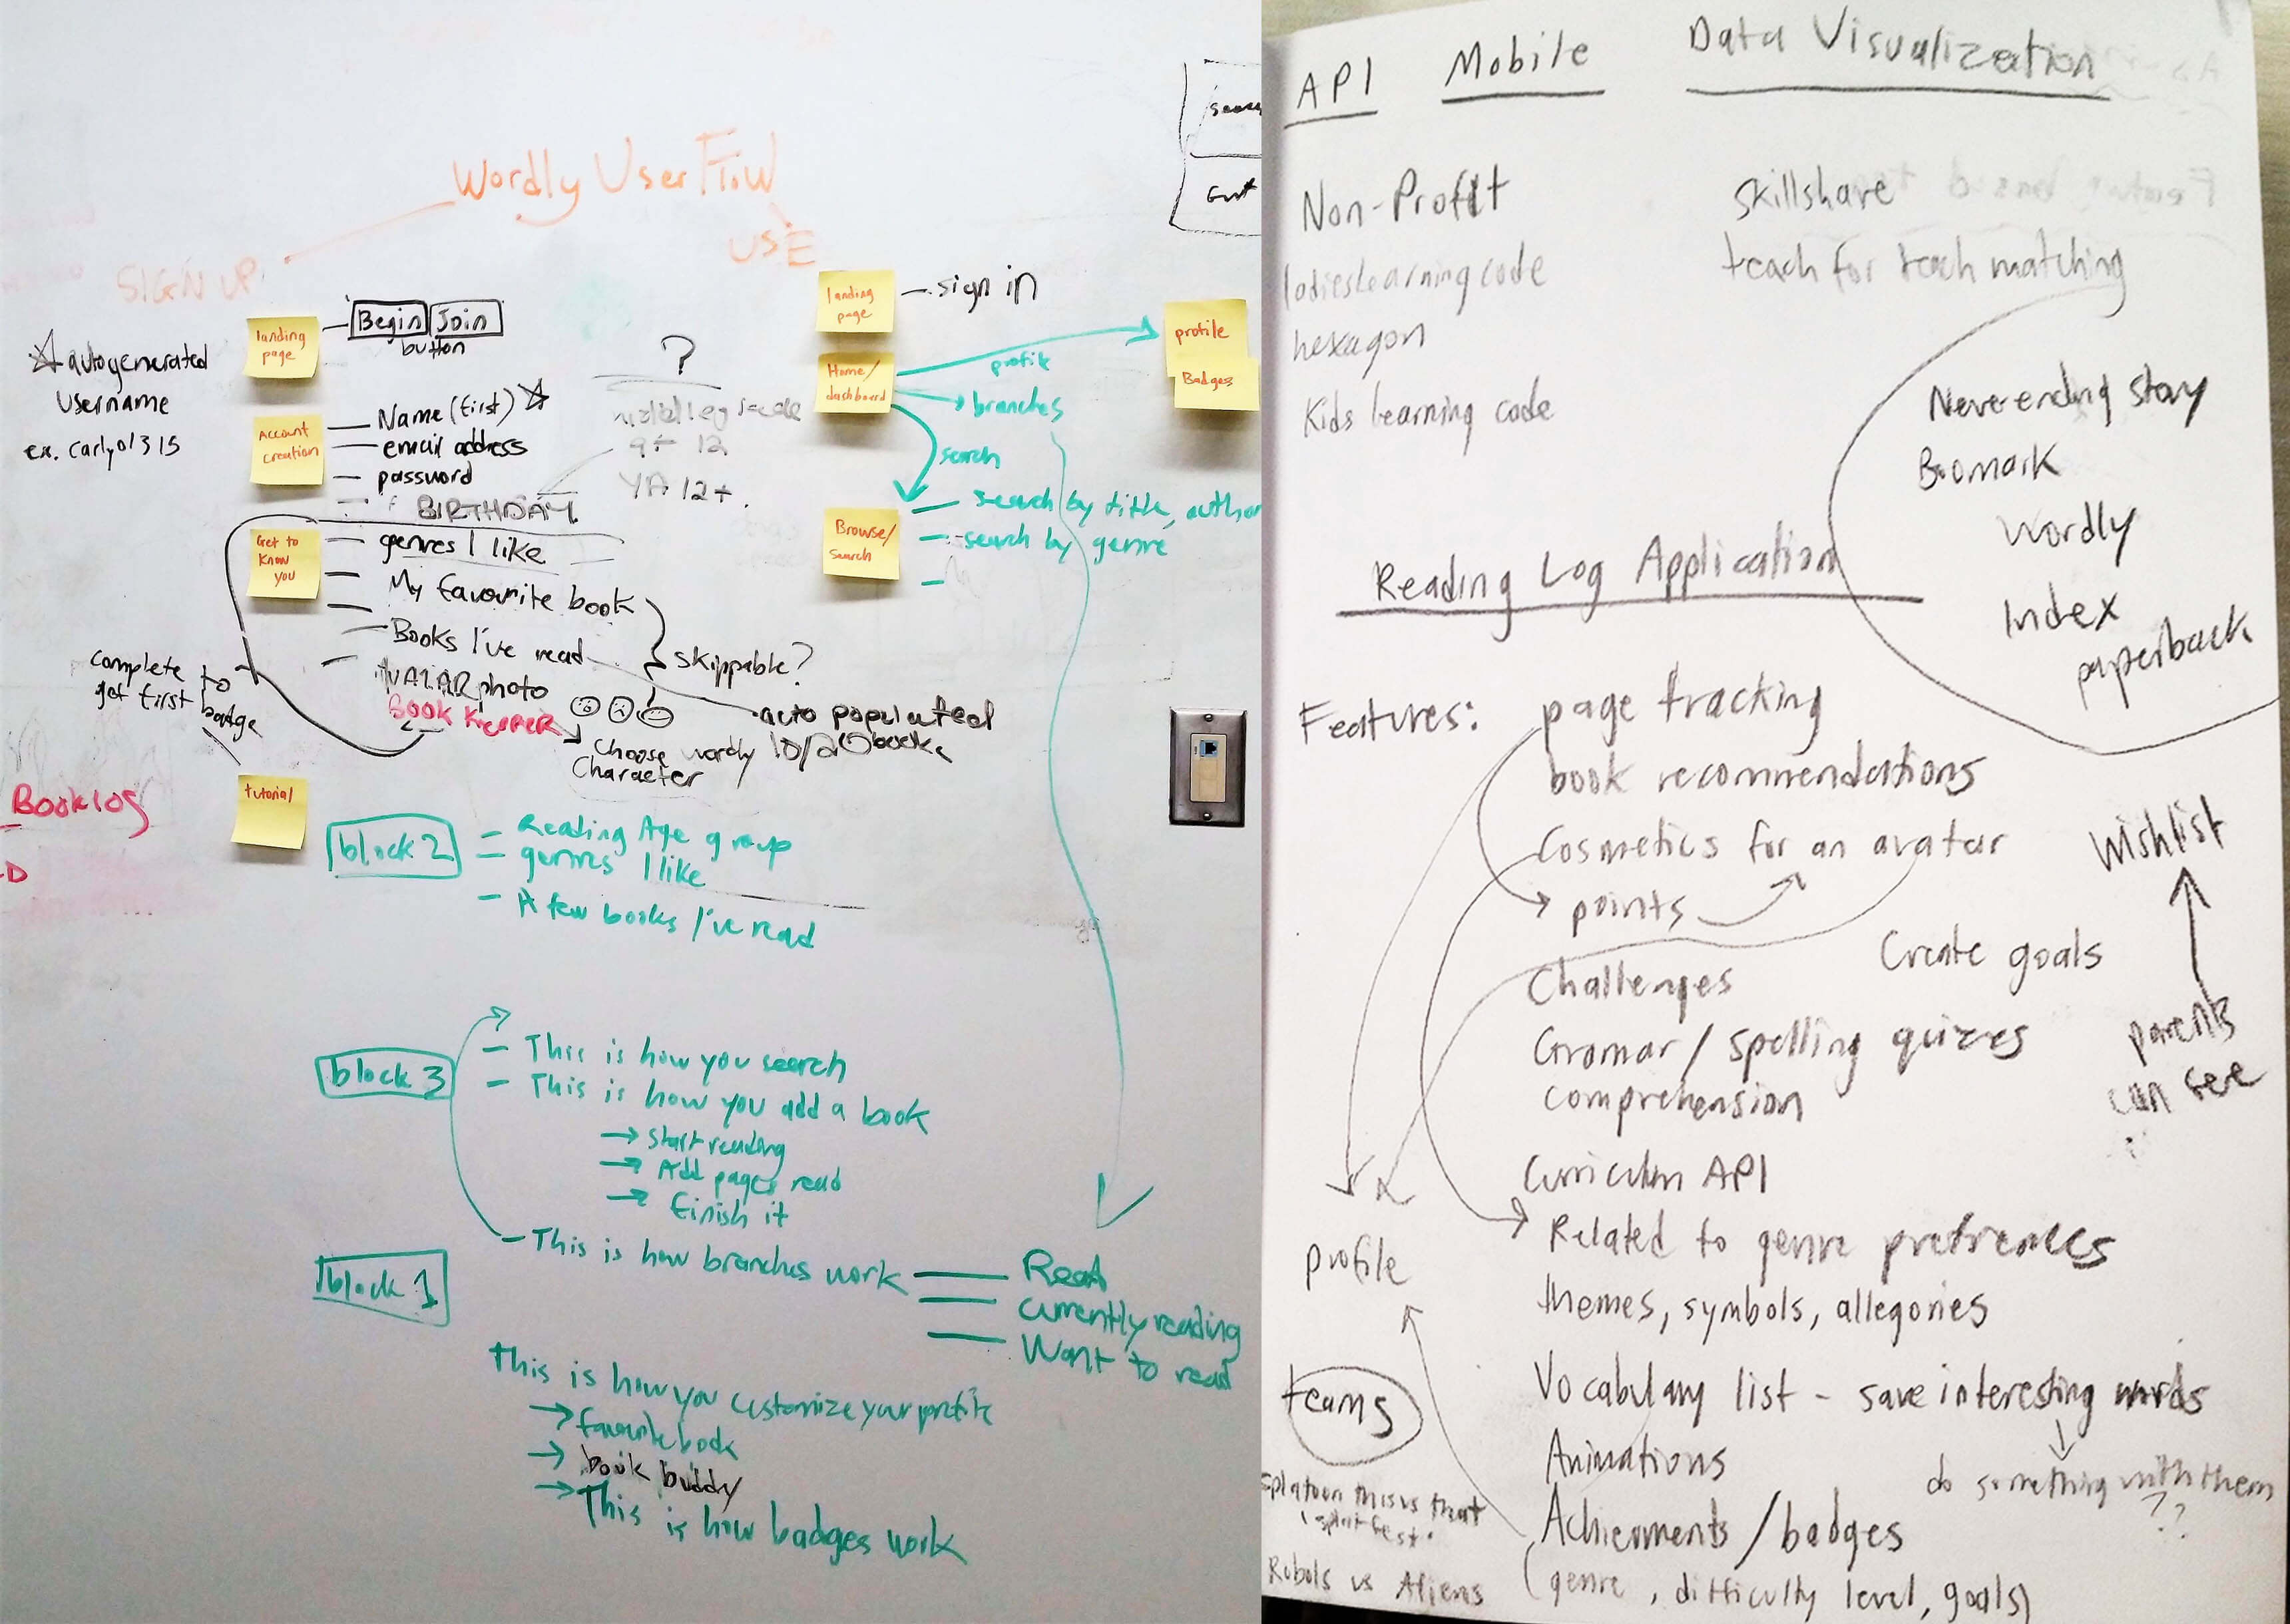 Wordly User Flow
SIGN UP
USE
landing page
Begin Join
button
autogenerated
Username
ex. carly01315
Account Creation
Name (first)
email address
password
BIRTHDAY
?
9 - 12
YA 12+
Get to Know you
genres I like
My favourite book
Books I've read
skippable?
photo
BOOK KEEPER
auto populated
10/20 books
Choose wordly
Character
Complete to
get first
badge
tutorial
Book log
D
landing page
sign in
Home/ dashboard
profile
branches
search
profile
Badges
Browse/ Search
search by title, author
search by genre
block 2
Reading Age group
genres I like
A few books I've read
block 3
This is how you search
This is how you add a book
start reading
Add pages read
finish it
This is how branches work
Read
Currently reading
Want to read
block 1
This is how you customize your profile
favourite book
book buddy
This is how badges work
API Mobile Data Visualization
Non-Profit
ladieslearning code
hexagon
Kids learning code
Skillshare
teach for teach matching
Neverending story
Boomark
Wordly
Index
paperback
Reading Log Application
Features: page tracking
book recommendations
Cosmetics for an avatar
points
Wishlist
parents
can see
Challenges
Create goals
Gramar / spelling quizes
comprehension
Curriculum API
Related to genre prefrences
themes, symbols, allegories
profile
teams
splatoon this vs that
splatfest
Robots vs Aliens
Vocabulary list - save interesting words
do something with them
??
Animations
Achievments / badges
(genre, difficulty level, goals)